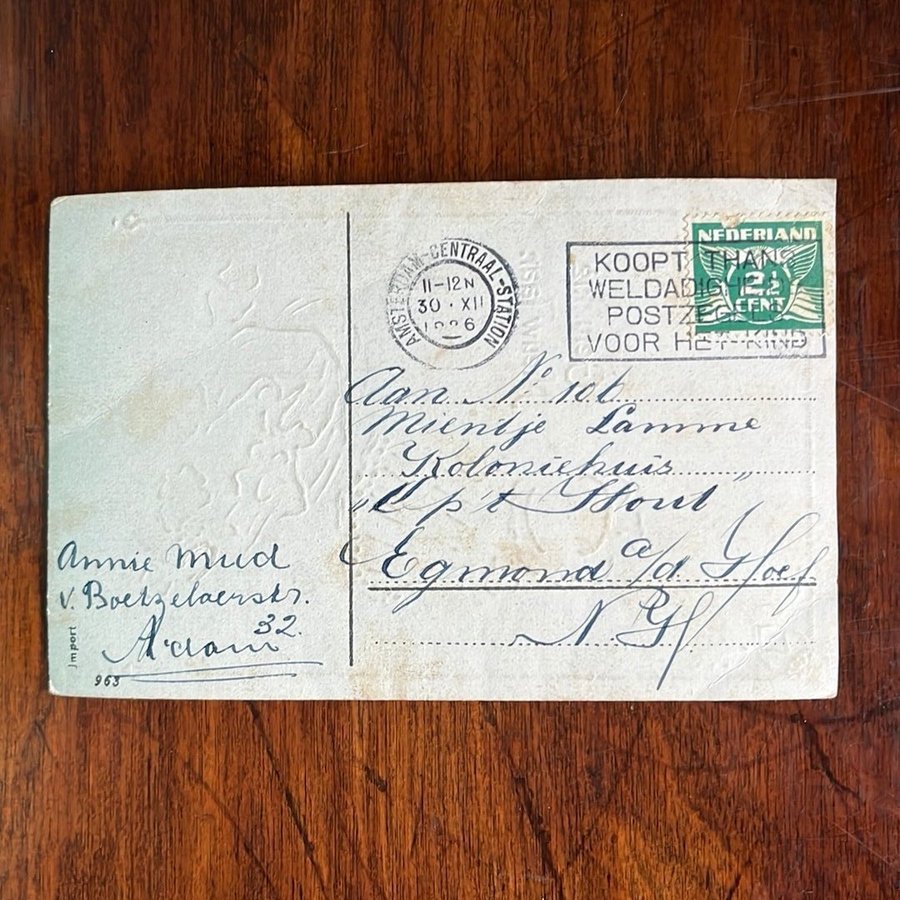 AMSTERDAM-CENTRAAL-STATION
11-12N
30·XII
1936
NEDERLAND
2½
CENT
KOOPT THANS
WELDADIGHEIDS
POSTZEGELS
VOOR HET KIND
Aan No 106
Mientje Lamme
Koloniehuis
„Op 't Hout"
Egmond a/d Hoef
N.H
Annie Mud
v. Boetzelaerstr.
32.
A'dam
Import
963